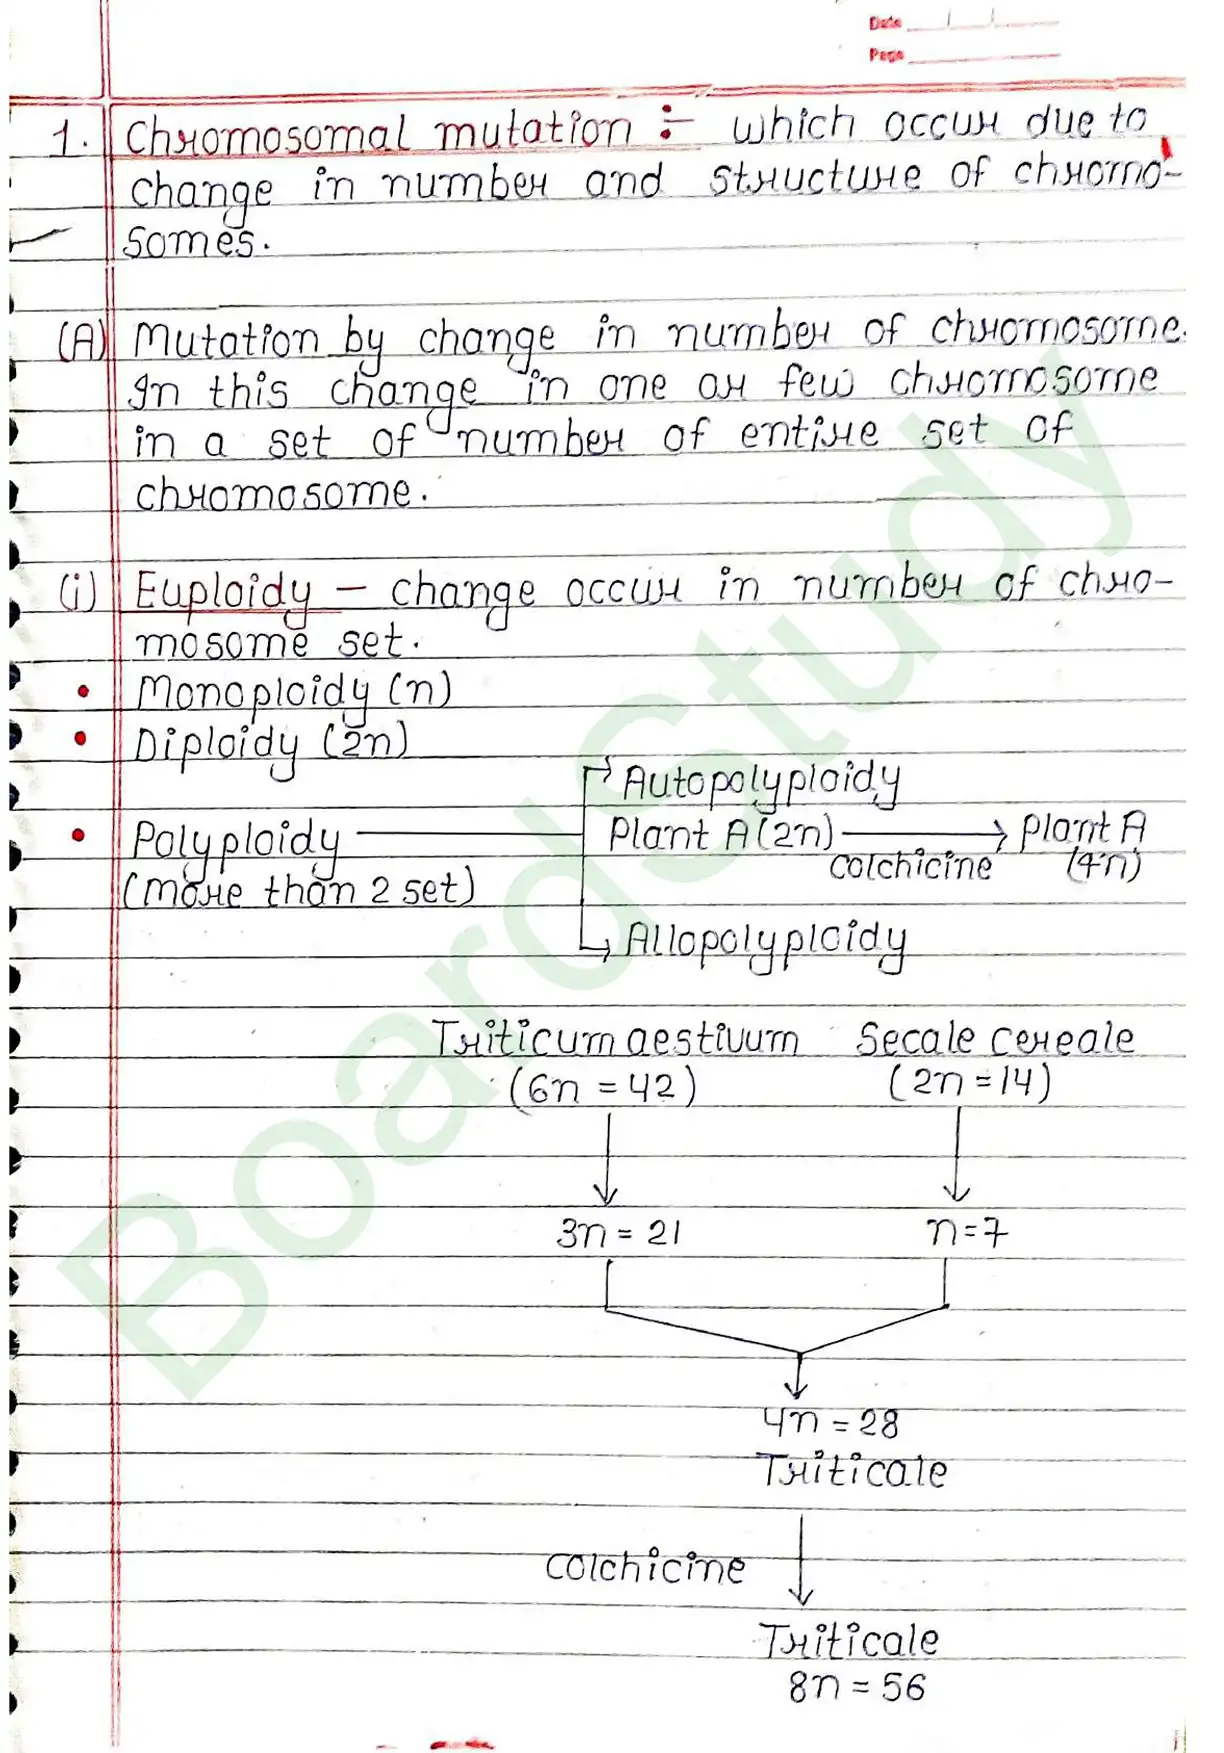 Date
Page
1. Chromosomal mutation :- which occur due to
change in number and structure of chromo-
somes.
(A) Mutation by change in number of chromosome.
In this change in one or few chromosome
in a set of number of entire set of
chromosome.
(i) Euploidy - change occur in number of chro-
mosome set.
• Monoploidy (n)
• Diploidy (2n)
Autopolyploidy
• Polyploidy Plant A (2n) → Plant A
(more than 2 set) colchicine (4n)
Allopolyploidy
Triticum aestivum Secale cereale
(6n = 42) (2n = 14)
3n = 21 n = 7
4n = 28
Triticale
Colchicine
Triticale
8n = 56
BoardStudy